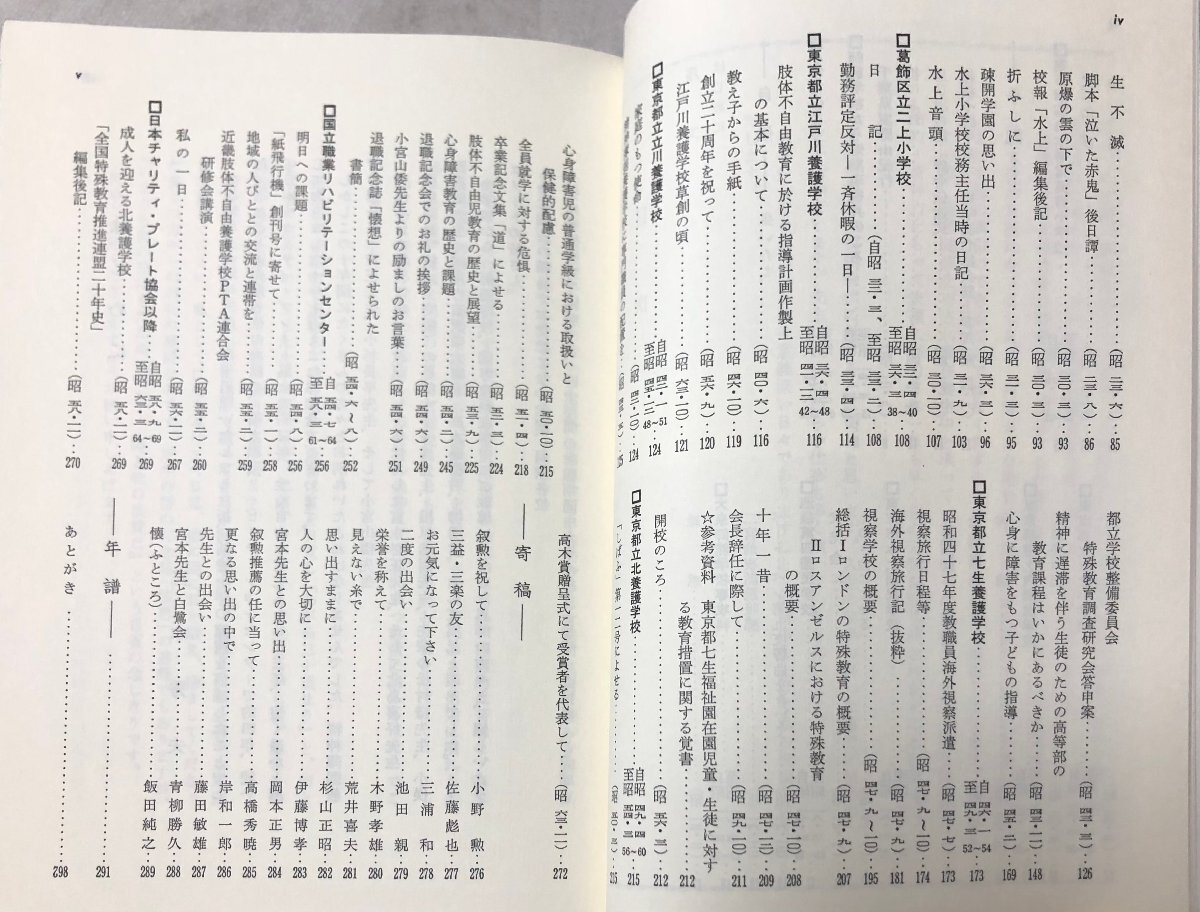 iv
生不滅……………（昭 二三・六）…85
脚本「泣いた赤鬼」後日譚……（昭 二三・八）…86
原爆の雲の下で……………（昭 三〇・九）…93
校報「水上」編集後記……（昭 三〇・二）…93
折ふしに……………（昭 三一・三）…95
疎開学園の思い出……（昭 二六・三）…96
水上小学校校務主任当時の日記……（昭 三一・九）…103
水上音頭……………（昭 三〇・一〇）…107
□葛飾区立二上小学校……自昭 三一・四 至昭 三六・三 38～40…108
日記……（自昭 三二・三、至昭 三三・二）…108
勤務評定反対―一斉休暇の一日―……（昭 三三・四）…114
□東京都立江戸川養護学校……自昭 三六・四 至昭 四一・三 42～48…116
肢体不自由教育に於ける指導計画作製上
の基本について……（昭 四〇・六）…116
教え子からの手紙……（昭 四六・一〇）…119
創立二十周年を祝って……（昭 五六・九）…120
江戸川養護学校草創の頃……（昭 六三・一〇）…121
□東京都立立川養護学校……自昭 四二・一 至昭 四五・一二 48～51…124
家庭のもつ使命……（昭 四三・一〇）…124
125
都立学校整備委員会
特殊教育調査研究会答申案……（昭 四三・三）…126
精神に遅滞を伴う生徒のための高等部の
教育課程はいかにあるべきか……（昭 四三・一二）…148
心身に障害をもつ子どもの指導……（昭 四五・二）…169
□東京都立七生養護学校……自 四六・一 至 四九・三 52～54…173
昭和四十七年度教職員海外視察派遣……（昭 四七・七）…173
視察旅行日程等……（昭 四七・一〇）…174
海外視察旅行記（抜粋）……181
視察学校の概要……（昭 四七・九～一〇）…195
総括Ⅰロンドンの特殊教育の概要……207
Ⅱロスアンゼルスにおける特殊教育
の概要……（昭 四七・一〇）…208
十年一昔……（昭 四九・二）…209
会長辞任に際して……（昭 四九・一〇）…211
☆参考資料 東京都七生福祉園在園児童・生徒に対す
る教育措置に関する覚書……212
開校のころ……（昭 五六・三）…212
□東京都立北養護学校……自昭 四九・四 至昭 五四・三 56～60…215
「しばふ」第一二号によせる……（昭 五〇・三）…215
v
心身障害児の普通学級における取扱いと
保健的配慮……（昭 五〇・一〇）…215
全員就学に対する危惧……（昭 五一・四）…218
卒業記念文集「道」によせる……（昭 五二・三）…224
肢体不自由児教育の歴史と展望……225
心身障害教育の歴史と課題……（昭 五四・二）…245
退職記念会でのお礼の挨拶……（昭 五四・六）…249
小宮山倭先生よりの励ましのお言葉……（昭 五四・六）…251
退職記念誌「懐想」によせられた
書簡……（昭 五四・六～八）…252
□国立職業リハビリテーションセンター……自 五四・七 至 五八・三 61～64…256
明日への課題……（昭 五四・八）…256
「紙飛行機」創刊号に寄せて……（昭 五五・二）…258
地域の人びととの交流と連帯を……（昭 五五・二）…259
近畿肢体不自由養護学校ＰＴＡ連合会
研修会講演……（昭 五五・二）…260
私の一日……（昭 五六・二）…267
□日本チャリティ・プレート協会以降……自昭 五八・九 至昭 六三・三 64～69…269
成人を迎える北養護学校……（昭 五八・二）…269
「全国特殊教育推進連盟二十年史」
編集後記……（昭 五八・二）…270
高木賞贈呈式にて受賞者を代表して……（昭 六三・二）…272
――寄稿――
叙勲を祝して……小野 勲…276
三益・三楽の友……佐藤彪也…277
お元気になって下さい……三浦 和…278
二度の出会い……池田 親…279
栄誉を称えて……木野孝雄…280
見えない糸で……荒井喜夫…281
思い出すままに……杉山正昭…282
人の心を大切に……伊藤博孝…283
宮本先生との思い出……岡本正男…284
叙勲推薦の任に当って……高橋秀暁…285
更なる思い出の中で……岸和一郎…286
先生との出会い……藤田敏雄…287
宮本先生と白鷺会……青柳勝久…288
懐（ふところ）……飯田純之…289
――年譜――……291
あとがき……298